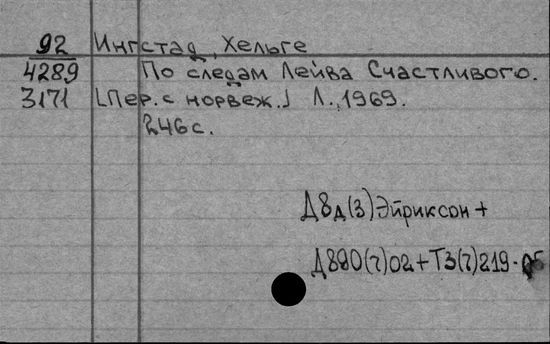 92 Ингстад, Хельге
4289 По следам Лейва Счастливого.
3171 [Пер. с норвеж.] Л., 1969.
246 с.
Д8д(3)Эйриксон +
Д890(7)02+Т3(7)219-